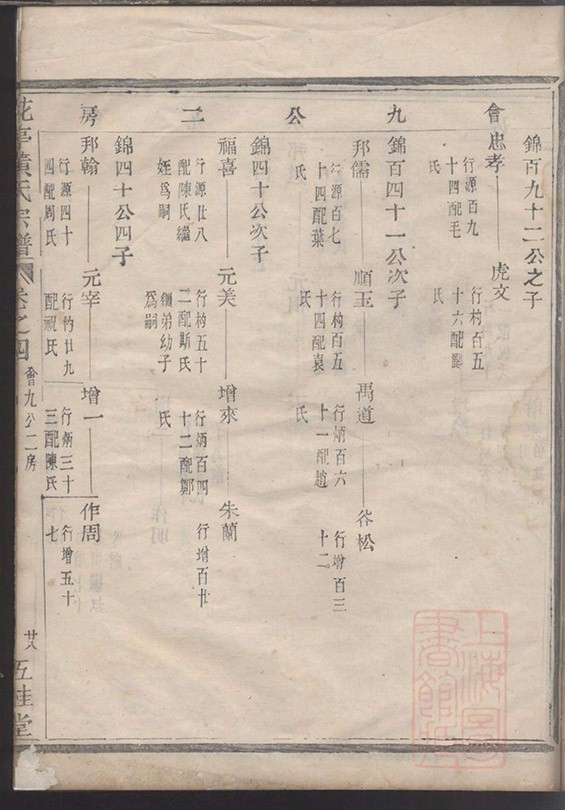 錦百九十二公之子
會九公二房
忠孝
行源百九十四配毛氏
虎文
行杓百五十六配鄭氏
錦百四十一公次子
邦儒
行源百七十四配葉氏
順玉
行杓百五十四配袁氏
禹道
行炳百六十一配趙氏
谷松
行增百三十二
錦四十公次子
福喜
行源廿八配陳氏繼姪爲嗣
元美
行杓五十二配斯氏繼弟幼子爲嗣
增來
行炳百四十二配鄭氏
朱蘭
行增百廿
錦四十公四子
邦翰
行源四十四配周氏
元宰
行杓廿九配祝氏
增一
行炳三十三配陳氏
作周
行增五十七
花亭黃氏宗譜
卷之四
會九公二房
廿八
五桂堂
上海圖書館藏